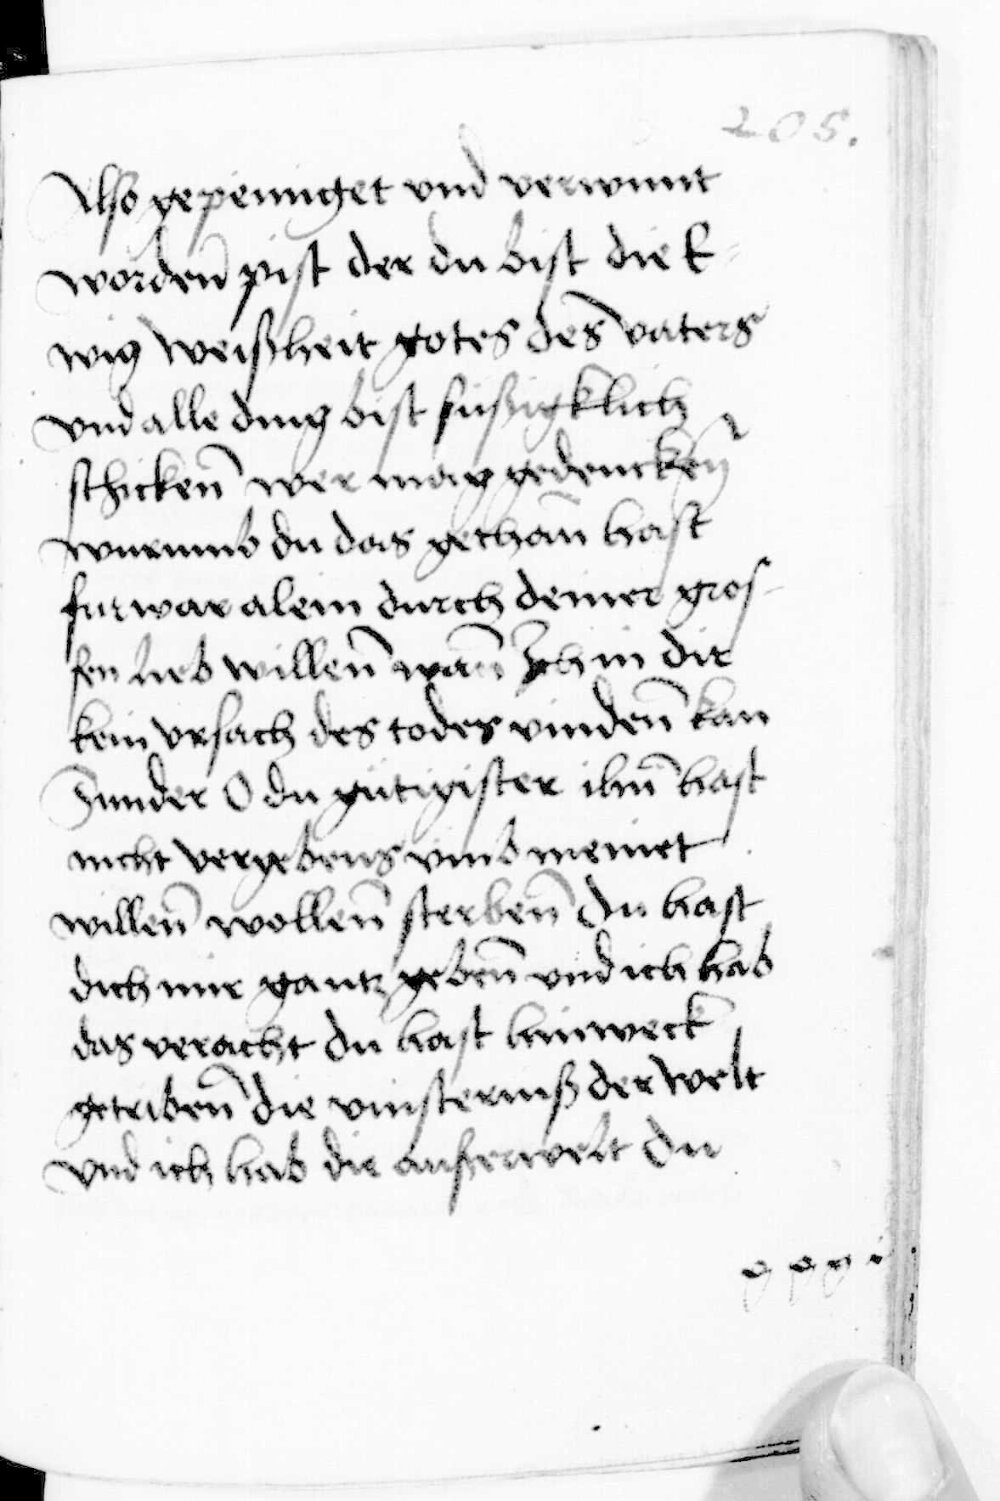 205.
Also gepeiniget vnd verwunt
worden̄ pist der du bist die E=
wig weißheit gotes des vaters
vnd alle ding bist süßigklich
schicken̄ wer mag gedencken̄
wurumb du das gethan̄ hast
furwar alein durch deiner gros-
sen lieb willen̄ wan̄ Ich in dir
kein vrsach des todes vinden̄ kan
Sunder O du gütigister ihū hast
nicht vergebens vmb meinet
willen̄ wollen̄ sterben̄ du hast
dich mir gantz geben̄ vnd ich hab
das veracht du hast hinweck
getriben̄ die vinsterniß der welt
vnd ich hab die außerwelt du